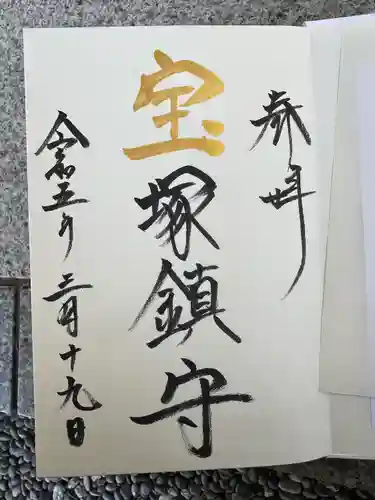 奉拝
宝塚鎮守
令和五年三月十九日